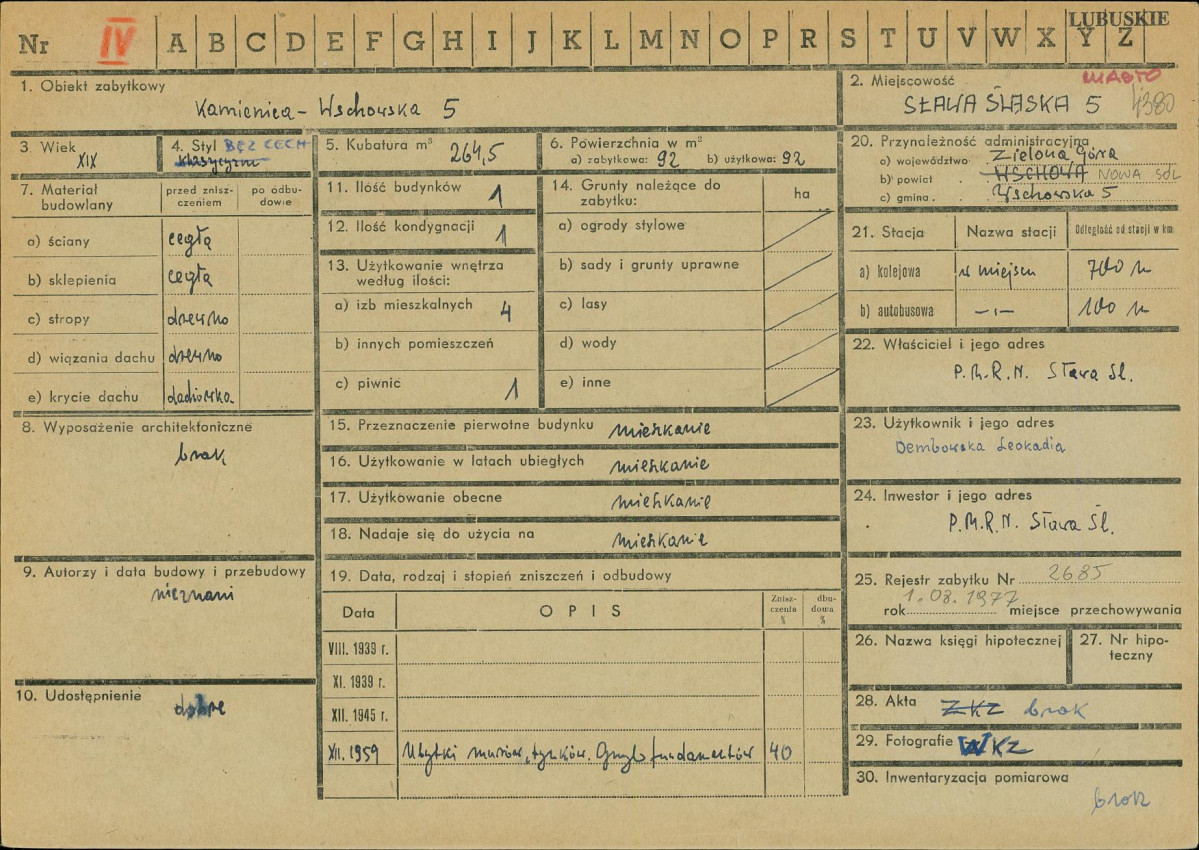 Nr IV A B C D E F G H I J K L M N O P R S T U V W X Y Z LUBUSKIE
1. Obiekt zabytkowy
Kamienica - Wschowska 5
2. Miejscowość MIASTO
SŁAWA ŚLĄSKA 5 4380
3. Wiek
XIX
4. Styl BEZ CECH
klasycyzm
5. Kubatura m³ 264,5
6. Powierzchnia w m²
a) zabytkowa: 92 b) użytkowa: 92
7. Materiał budowlany
przed zniszczeniem
po odbudowie
a) ściany cegła
b) sklepienia cegła
c) stropy drewno
d) wiązania dachu drewno
e) krycie dachu dachówka
8. Wyposażenie architektoniczne
brak
9. Autorzy i data budowy i przebudowy
nieznani
10. Udostępnienie
dobre
11. Ilość budynków 1
12. Ilość kondygnacji 1
13. Użytkowanie wnętrza
według ilości:
a) izb mieszkalnych 4
b) innych pomieszczeń
c) piwnic 1
14. Grunty należące do
zabytku: ha
a) ogrody stylowe
b) sady i grunty uprawne
c) lasy
d) wody
e) inne
15. Przeznaczenie pierwotne budynku mieszkanie
16. Użytkowanie w latach ubiegłych mieszkanie
17. Użytkowanie obecne mieszkanie
18. Nadaje się do użycia na mieszkanie
19. Data, rodzaj i stopień zniszczeń i odbudowy
Data OPIS Zniszczenia % dbudowa %
VIII. 1939 r.
XI. 1939 r.
XII. 1945 r.
XII. 1959 Ubytki murów, tynków. Grzyb fundamentów 40
20. Przynależność administracyjna
a) województwo Zielona Góra
b) powiat WSCHOWA NOWA SÓL
c) gmina Wschowska 5
21. Stacja Nazwa stacji Odległość od stacji w km.
a) kolejowa w miejscu 700 m
b) autobusowa -„- 100 m
22. Właściciel i jego adres
P.M.R.N. Sława Śl.
23. Użytkownik i jego adres
Dembowska Leokadia
24. Inwestor i jego adres
P.M.R.N. Sława Śl.
25. Rejestr zabytku Nr 2685
rok 1.08.1977 miejsce przechowywania
26. Nazwa księgi hipotecznej
27. Nr hipoteczny
28. Akta ZKZ brak
29. Fotografie WKZ
30. Inwentaryzacja pomiarowa
brak